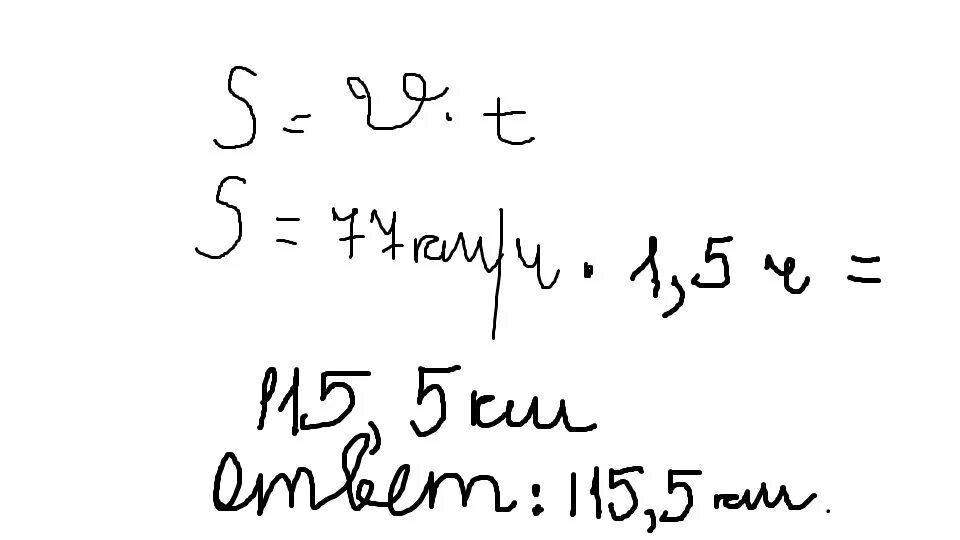 S = v · t
S = 77км/ч · 1,5 ч =
115,5км
ответ: 115,5км.